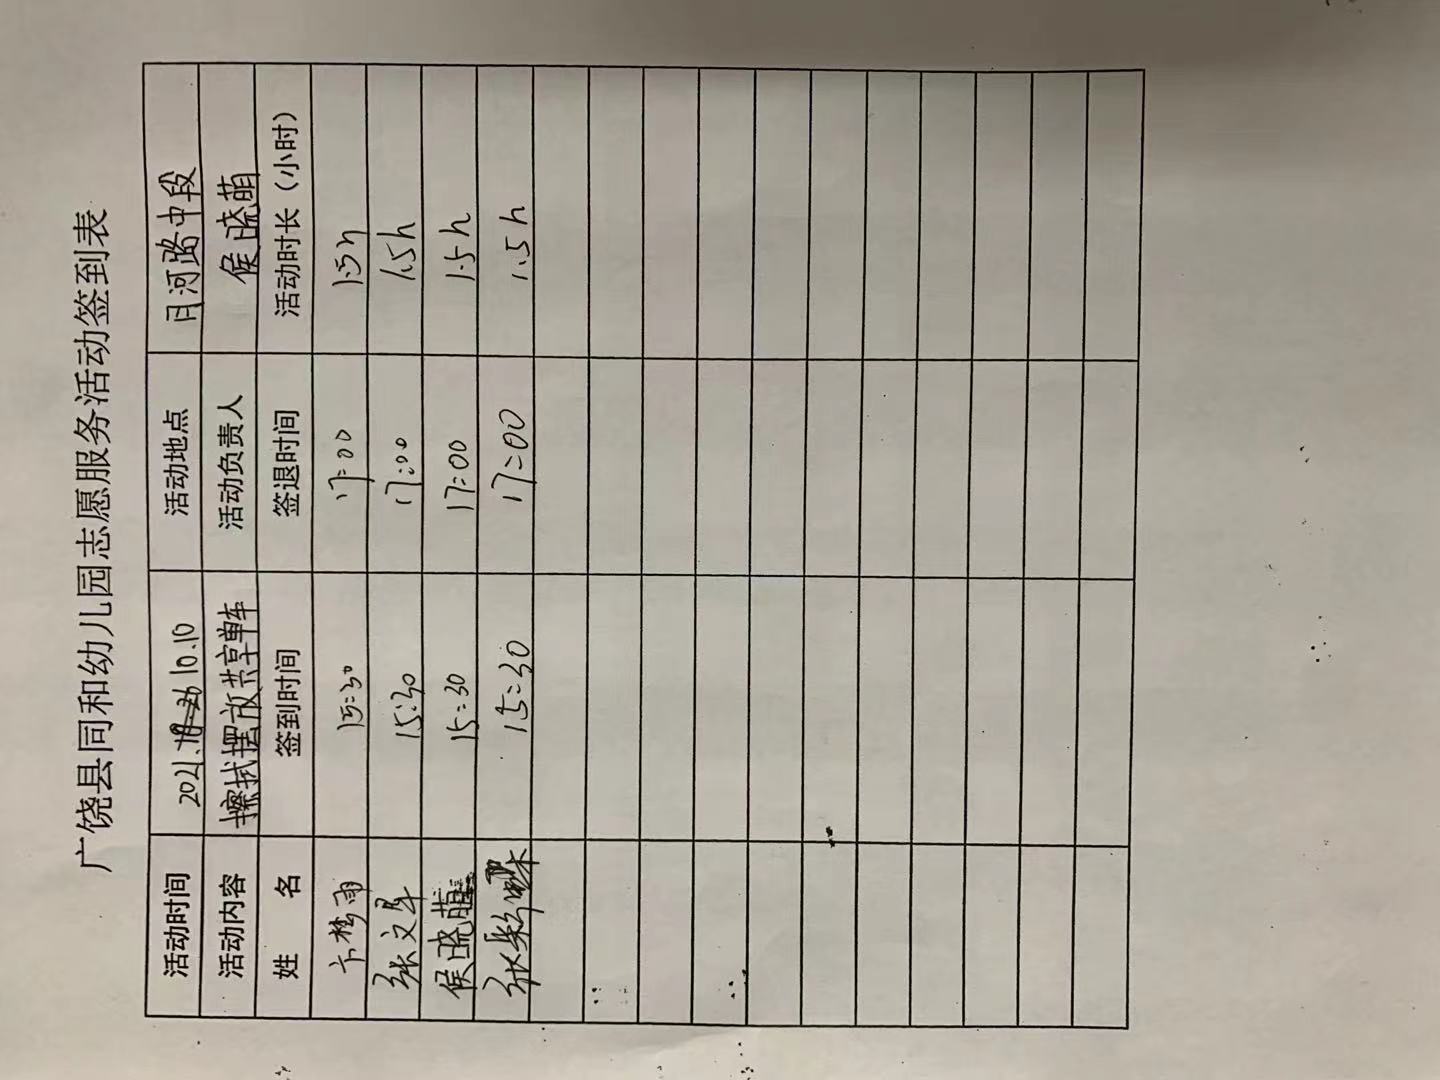 广饶县同和幼儿园志愿服务活动签到表
活动时间 2021. 10.10 活动地点 月河路中段
活动内容 擦拭摆放共享单车 活动负责人 侯晓萌
姓 名 签到时间 签退时间 活动时长（小时）
卞梦雨 15:30 17:00 1.5h
张文星 15:30 17:00 1.5h
侯晓萌 15:30 17:00 1.5h
张彩 15:30 17:00 1.5h